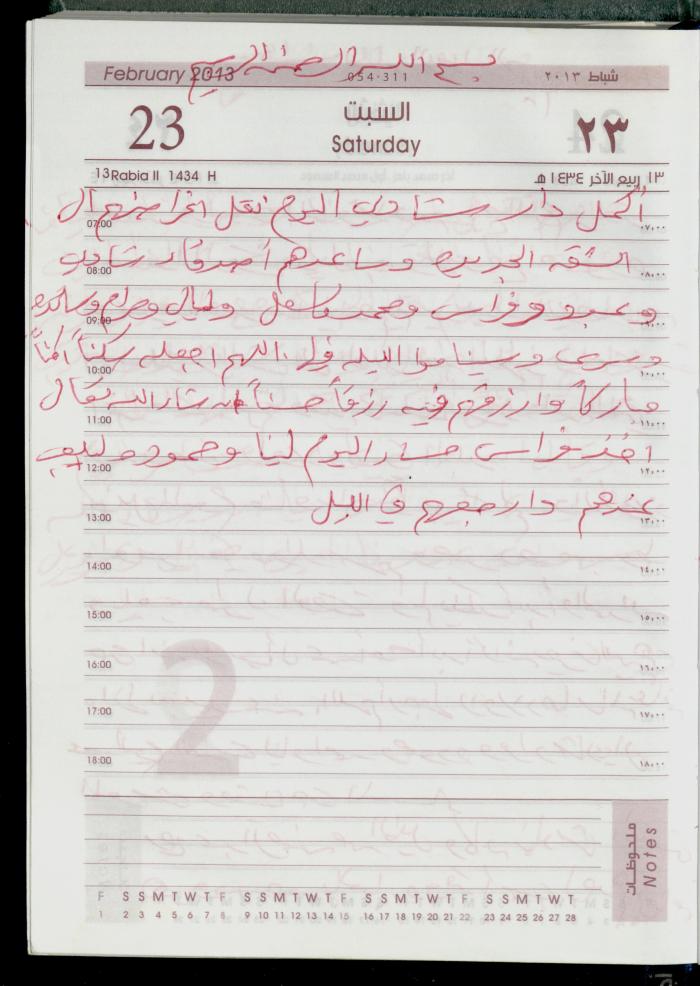 بسم الله الرحمن الرحيم
February 2013 054-311 شباط ٢٠١٣
23 السبت ٢٣
Saturday
13 Rabia II 1434 H ١٣ ربيع الآخر ١٤٣٤ هـ
أكمل دار شادي اليوم نقل اغراضهم ال
07:00 ٠٧,٠٠
الشقه الجديده وساعدهم أصدقاء شادي
08:00 ٠٨,٠٠
وعبد وفراس ومحمد وليالي ومرام
09:00 ٠٩,٠٠
وسرى وسيناموا الليله فيها اللهم اجعله سكناً امناً
10:00 ١٠,٠٠
مباركاً وارزقهم فيه رزقاً حسناً ان شاء الله تعالى
11:00 ١١,٠٠
اخذ فراس مساء اليوم لينا وحموده
12:00 ١٢,٠٠
عندهم وارجعهم في الليل
13:00 ١٣,٠٠
14:00 ١٤,٠٠
15:00 ١٥,٠٠
16:00 ١٦,٠٠
17:00 ١٧,٠٠
18:00 ١٨,٠٠
2
ملحوظات
Notes
F S S M T W T F S S M T W T F S S M T W T F S S M T W T
1 2 3 4 5 6 7 8 9 10 11 12 13 14 15 16 17 18 19 20 21 22 23 24 25 26 27 28